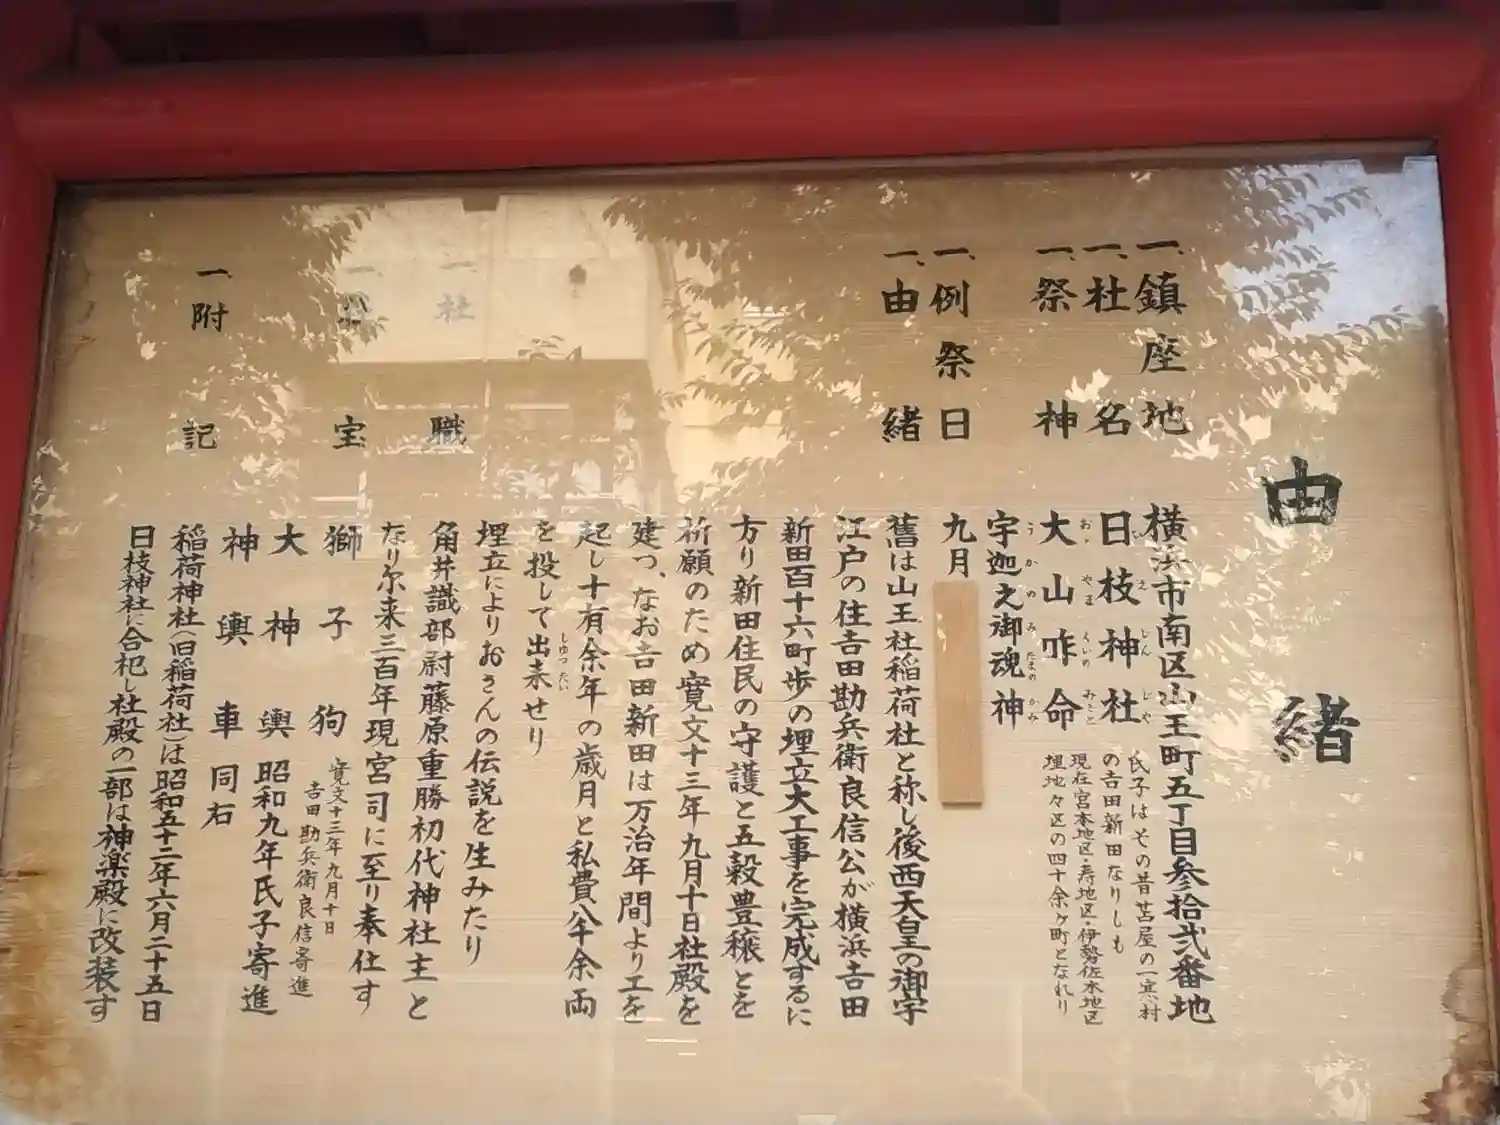 由緒
一、鎮座地 横浜市南区山王町五丁目参拾弐番地
一、社名 日枝神社 氏子はその昔苫屋の一寒村
の吉田新田なりしも
一、祭神 大山咋命 現在宮本地区・寿地区・伊勢佐木地区
埋地々区の四十余ヶ町となれり
おゝやまくいのみこと
宇迦之御魂神
うかのみたまのかみ
一、例祭日 九月
一、由緒 舊は山王社稲荷社と称し後西天皇の御宇
江戸の住吉田勘兵衛良信公が横浜吉田
新田百十六町歩の埋立大工事を完成するに
方り新田住民の守護と五穀豊穣とを
祈願のため寛文十三年九月十日社殿を
建つ、なお吉田新田は万治年間より工を
起し十有余年の歳月と私費八千余両
を投して出来せり
しゆつたい
埋立によりおさんの伝説を生みたり
一、社職 角井識部尉藤原重勝初代神社主と
なり尓来三百年現宮司に至り奉仕す
一、宝 獅子狗 寛文十三年九月十日
吉田勘兵衛良信寄進
大神輿 昭和九年氏子寄進
神輿車 同右
一、附記 稲荷神社(旧稲荷社)は昭和五十二年六月二十五日
日枝神社に合祀し社殿の一部は神楽殿に改装す